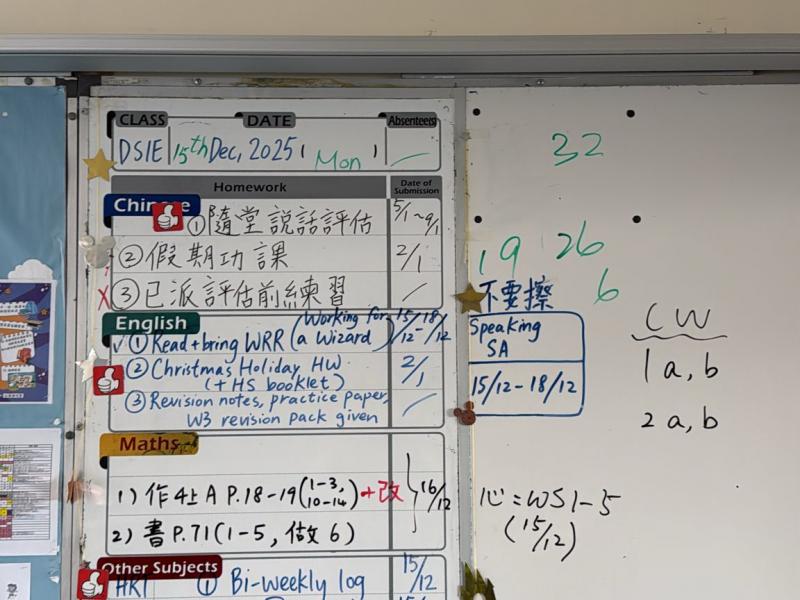 CLASS DATE Absentee(s)
DSIE 15th Dec, 2025 ( Mon )
Homework Date of Submission
Chinese
① 隨堂說話評估 5/1~9/1
② 假期功課 2/1
③ 已派評估前練習
English
① Read + bring WRR (Working for a Wizard) 15/12-18/12
② Christmas Holiday HW 2/1
(+ HS booklet)
③ Revision notes, practice paper,
W3 revision pack given
Maths
1) 作4上A P.18-19 (1-3, 10-14) +改 16/12
2) 書P.71 (1-5, 做6)
Other Subjects
① Bi-weekly log 15/12
32
19 26
6
不要擦
Speaking
SA
15/12-18/12
CW
1 a, b
2 a, b
心: WS1-5
(15/12)